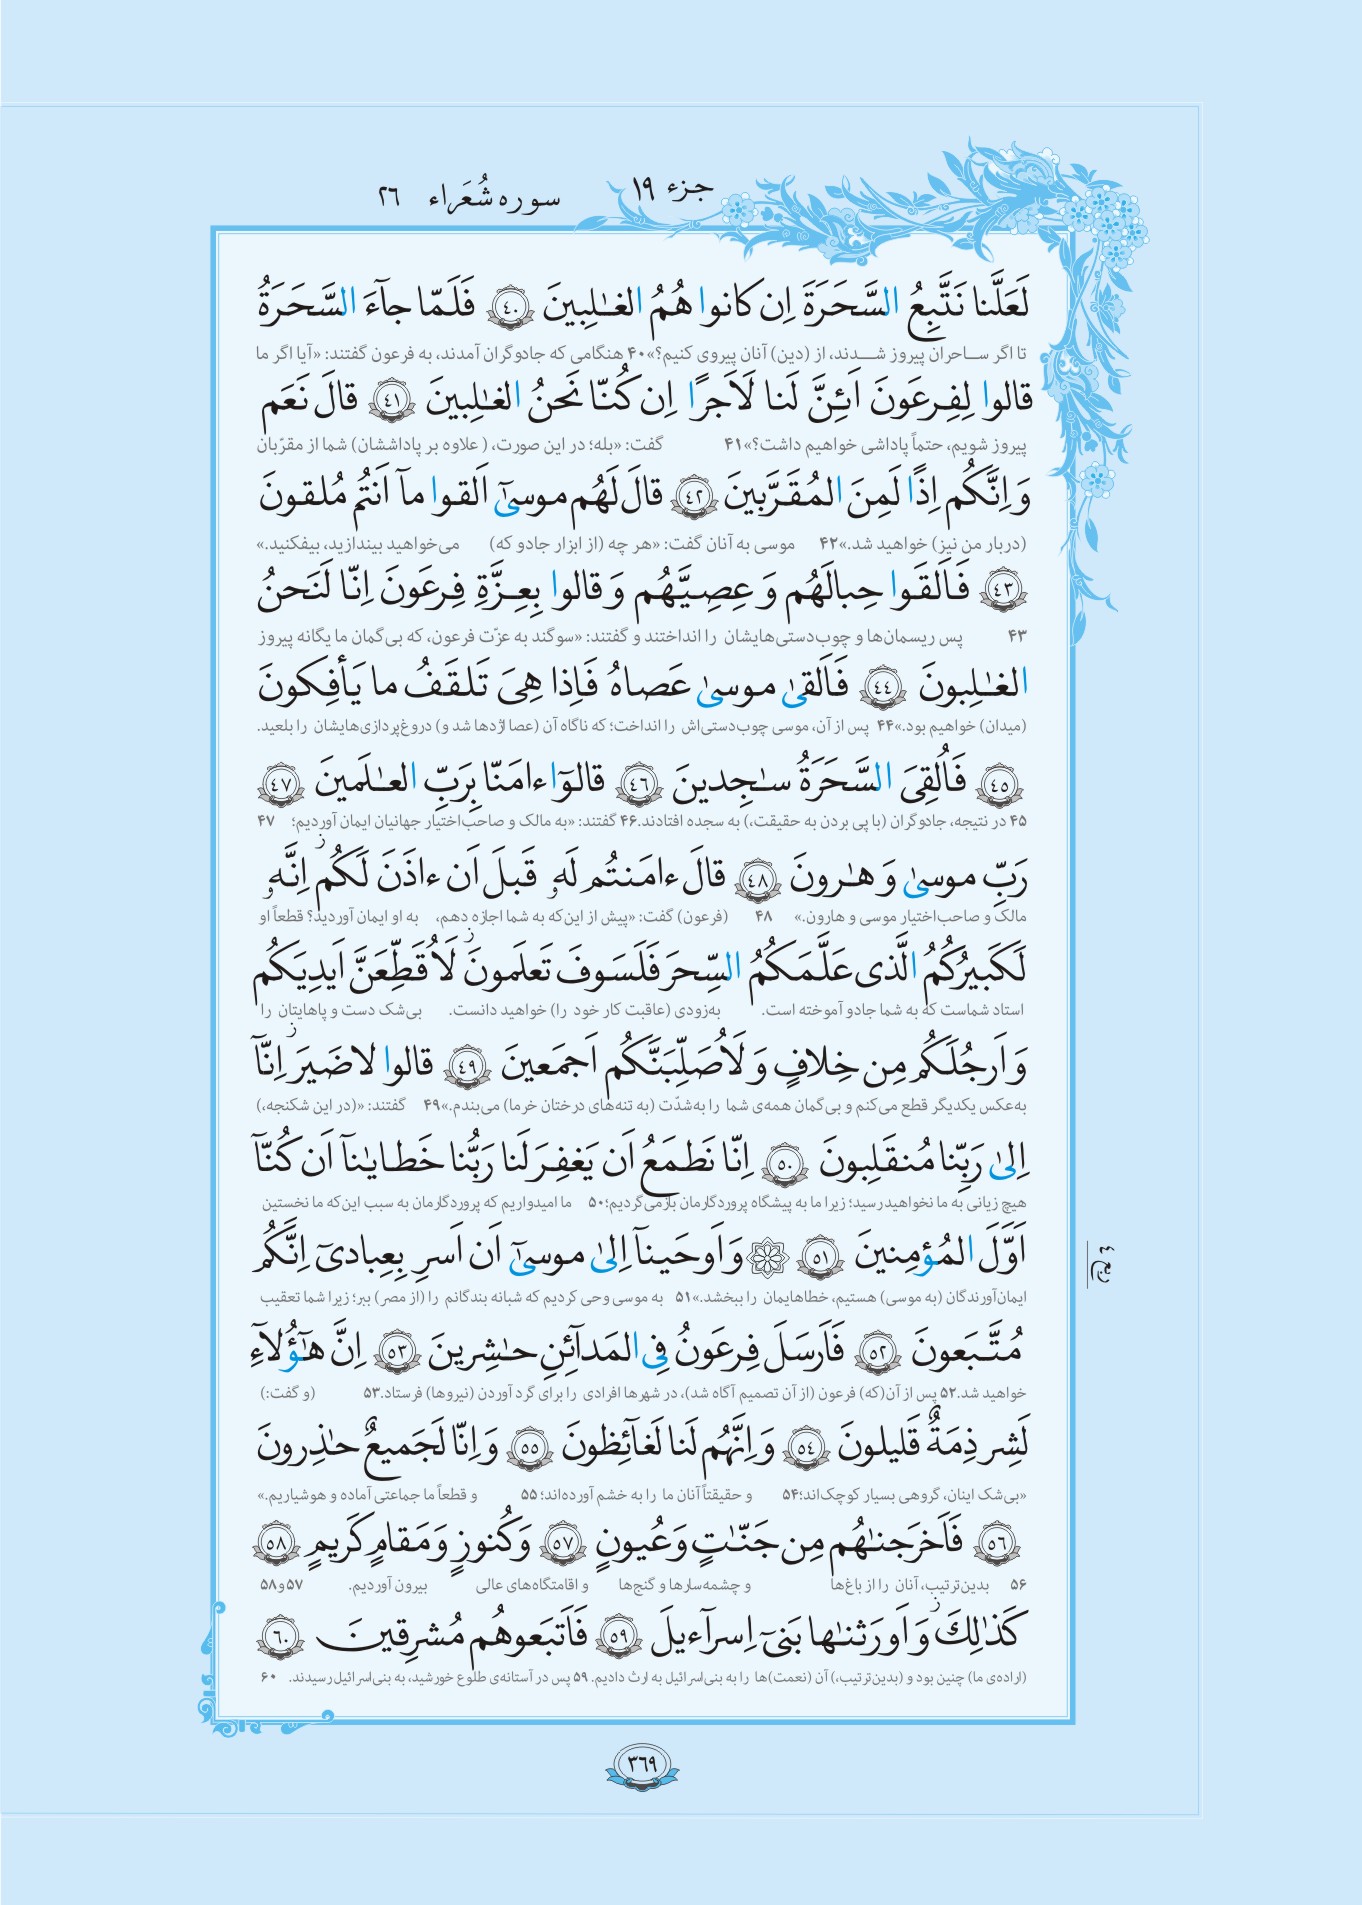 جزء ١٩
سوره شُعَراء ٢٦
لَعَلَّنا نَتَّبِعُ السَّحَرَةَ اِن كانوا هُمُ الغـٰلِبينَ ﴿٤٠﴾ فَلَمّا جآءَ السَّحَرَةُ
تا اگر ساحران پیروز شدند، از (دین) آنان پیروی کنیم؟» ۴۰ هنگامی که جادوگران آمدند، به فرعون گفتند: «آیا اگر ما
قالوا لِفِرعَونَ اَئِنَّ لَنا لَاَجرًا اِن كُنّا نَحنُ الغـٰلِبينَ ﴿٤١﴾ قالَ نَعَم
پیروز شویم، حتماً پاداشی خواهیم داشت؟» ۴۱ گفت: «بله؛ در این صورت، (علاوه بر پاداششان) شما از مقرّبان
وَ اِنَّكُم اِذًا لَمِنَ المُقَرَّبينَ ﴿٤٢﴾ قالَ لَهُم موسىٰٓ اَلقوا مآ اَنتُم مُلقونَ
(دربار من نیز) خواهید شد.» ۴۲ موسی به آنان گفت: «هر چه (از ابزار جادو که) می‌خواهید بیندازید، بیفکنید.»
﴿٤٣﴾ فَاَلقَوا حِبالَهُم وَ عِصِيَّهُم وَ قالوا بِعِزَّةِ فِرعَونَ اِنّا لَنَحنُ
۴۳ پس ریسمان‌ها و چوب‌دستی‌هایشان را انداختند و گفتند: «سوگند به عزّت فرعون، که بی‌گمان ما یگانه پیروز
الغـٰلِبونَ ﴿٤٤﴾ فَاَلقىٰ موسىٰ عَصاهُ فَاِذا هِىَ تَلقَفُ ما يَأفِكونَ
(میدان) خواهیم بود.» ۴۴ پس از آن، موسی چوب‌دستی‌اش را انداخت؛ که ناگاه آن (عصا اژدها شد و) دروغ‌پردازی‌هایشان را بلعید.
﴿٤٥﴾ فَاُلقِىَ السَّحَرَةُ سـٰجِدينَ ﴿٤٦﴾ قالوٓا ءامَنّا بِرَبِّ العـٰلَمينَ ﴿٤٧﴾
۴۵ در نتیجه، جادوگران (با پی بردن به حقیقت،) به سجده افتادند. ۴۶ گفتند: «به مالک و صاحب‌اختیار جهانیان ایمان آوردیم؛ ۴۷
رَبِّ موسىٰ وَ هـٰرونَ ﴿٤٨﴾ قالَ ءامَنتُم لَهو قَبلَ اَن ءاذَنَ لَكُم ز اِنَّهو
مالک و صاحب‌اختیار موسی و هارون.» ۴۸ (فرعون) گفت: «پیش از این‌که به شما اجازه دهم، به او ایمان آوردید؟ قطعاً او
لَكَبيرُكُمُ الَّذى عَلَّمَكُمُ السِّحرَ فَلَسَوفَ تَعلَمونَ ز لَاُقَطِّعَنَّ اَيدِيَكُم
استاد شماست که به شما جادو آموخته است. به‌زودی (عاقبت کار خود را) خواهید دانست. بی‌شک دست و پاهایتان را
وَ اَرجُلَكُم مِن خِلافٍ وَ لَاُصَلِّبَنَّكُم اَجمَعينَ ﴿٤٩﴾ قالوا لا ضَيرَ ز اِنّآ
به‌عکس یکدیگر قطع می‌کنم و بی‌گمان همه‌ی شما را به‌شدّت (به تنه‌های درختان خرما) می‌بندم.» ۴۹ گفتند: «(در این شکنجه،)
اِلىٰ رَبِّنا مُنقَلِبونَ ﴿٥٠﴾ اِنّا نَطمَعُ اَن يَغفِرَ لَنا رَبُّنا خَطايـٰنآ اَن كُنّآ
هیچ زیانی به ما نخواهید رسید؛ زیرا ما به پیشگاه پروردگارمان بازمی‌گردیم؛ ۵۰ ما امیدواریم که پروردگارمان به سبب این‌که ما نخستین
اَوَّلَ المُؤمِنينَ ﴿٥١﴾ ۞ وَ اَوحَينآ اِلىٰ موسىٰٓ اَن اَسرِ بِعِبادىٓ اِنَّكُم
ایمان‌آورندگان (به موسی) هستیم، خطاهایمان را ببخشد.» ۵۱ به موسی وحی کردیم که شبانه بندگانم را (از مصر) ببر؛ زیرا شما تعقیب
ربع ٤
مُتَّبَعونَ ﴿٥٢﴾ فَاَرسَلَ فِرعَونُ فِى المَدآئِنِ حـٰشِرينَ ﴿٥٣﴾ اِنَّ هـٰٓؤُلآءِ
خواهید شد. ۵۲ پس از آن (که) فرعون (از آن تصمیم آگاه شد)، در شهرها افرادی را برای گرد آوردن (نیروها) فرستاد. ۵۳ (و گفت:)
لَشِرذِمَةٌ قَليلونَ ﴿٥٤﴾ وَ اِنَّهُم لَنا لَغآئِظونَ ﴿٥٥﴾ وَ اِنّا لَجَميعٌ حـٰذِرونَ
«بی‌شک اینان، گروهی بسیار کوچک‌اند؛ ۵۴ و حقیقتاً آنان ما را به خشم آورده‌اند؛ ۵۵ و قطعاً ما جماعتی آماده و هوشیاریم.»
﴿٥٦﴾ فَاَخرَجنـٰهُم مِن جَنّـٰتٍ وَ عُيونٍ ﴿٥٧﴾ وَ كُنوزٍ وَ مَقامٍ كَريمٍ ﴿٥٨﴾
۵۶ بدین‌ترتیب، آنان را از باغ‌ها و چشمه‌سارها و گنج‌ها و اقامتگاه‌های عالی بیرون آوردیم. ۵۷ و ۵۸
كَذٰلِكَ ز وَ اَورَثنـٰها بَنىٓ اِسرآءيلَ ﴿٥٩﴾ فَاَتبَعوهُم مُشرِقينَ ﴿٦٠﴾
(اراده‌ی ما) چنین بود و (بدین‌ترتیب،) آن (نعمت)ها را به بنی‌اسرائیل به ارث دادیم. ۵۹ پس در آستانه‌ی طلوع خورشید، به بنی‌اسرائیل رسیدند. ۶۰
٣٦٩